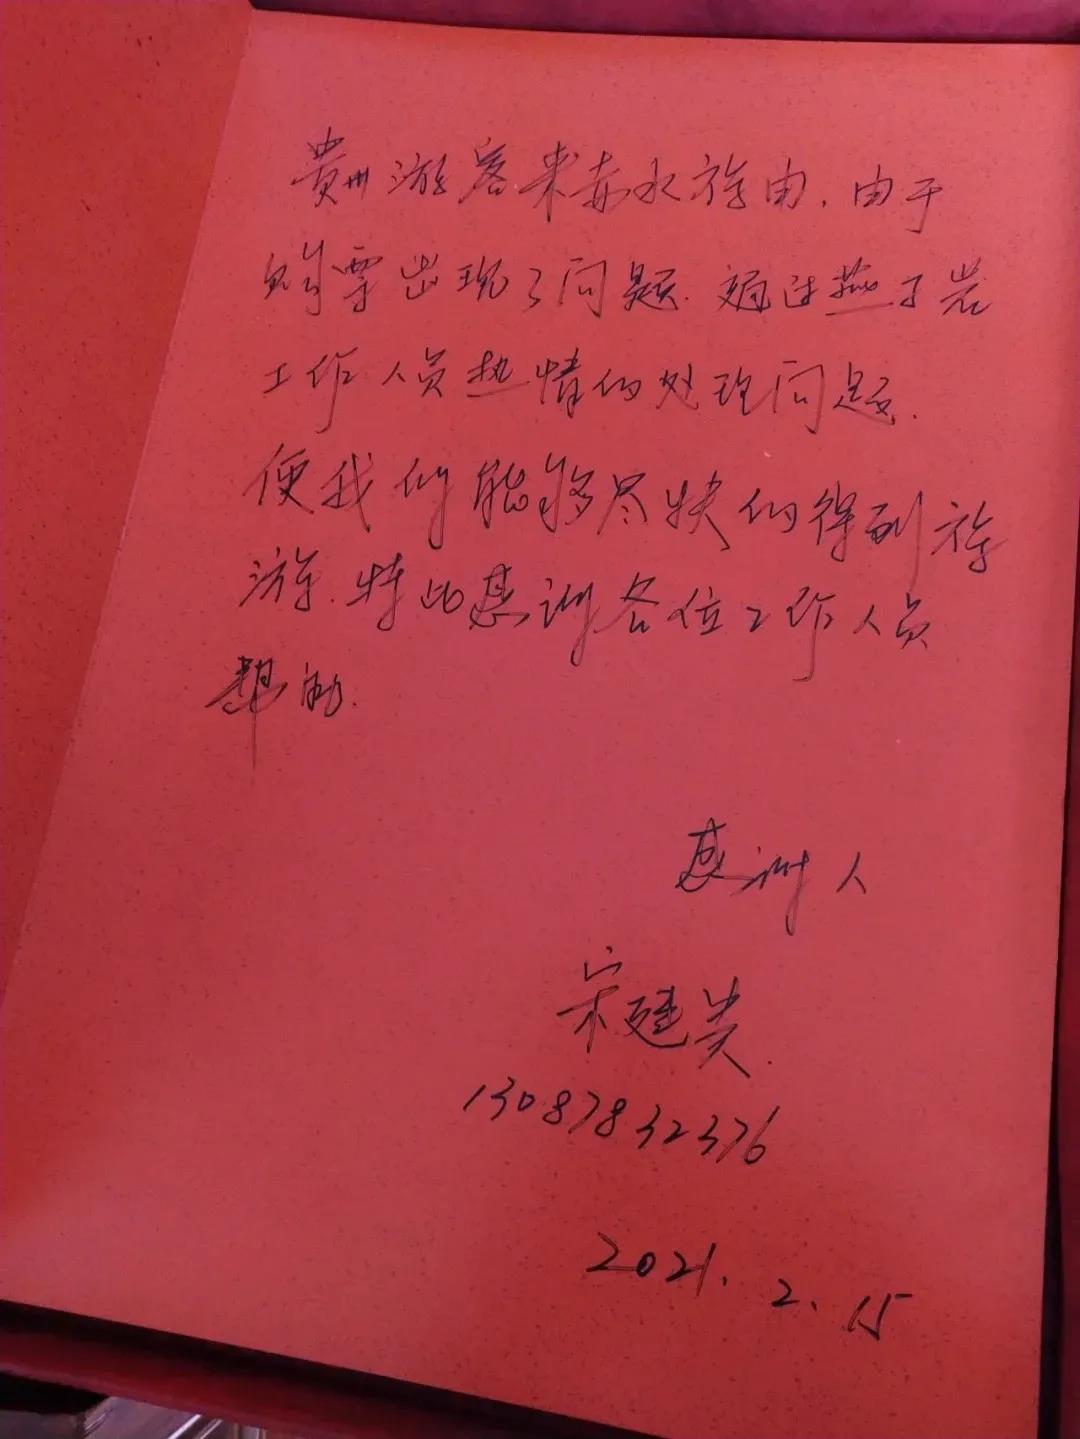 贵州游客来赤水旅由，由于
购票出现了问题.通过燕子岩
工作人员热情的处理问题.
使我们能够尽快的得到旅
游.特此感谢各位工作人员
帮助.
感谢人
宋建贵
13087832376
2021.2.15